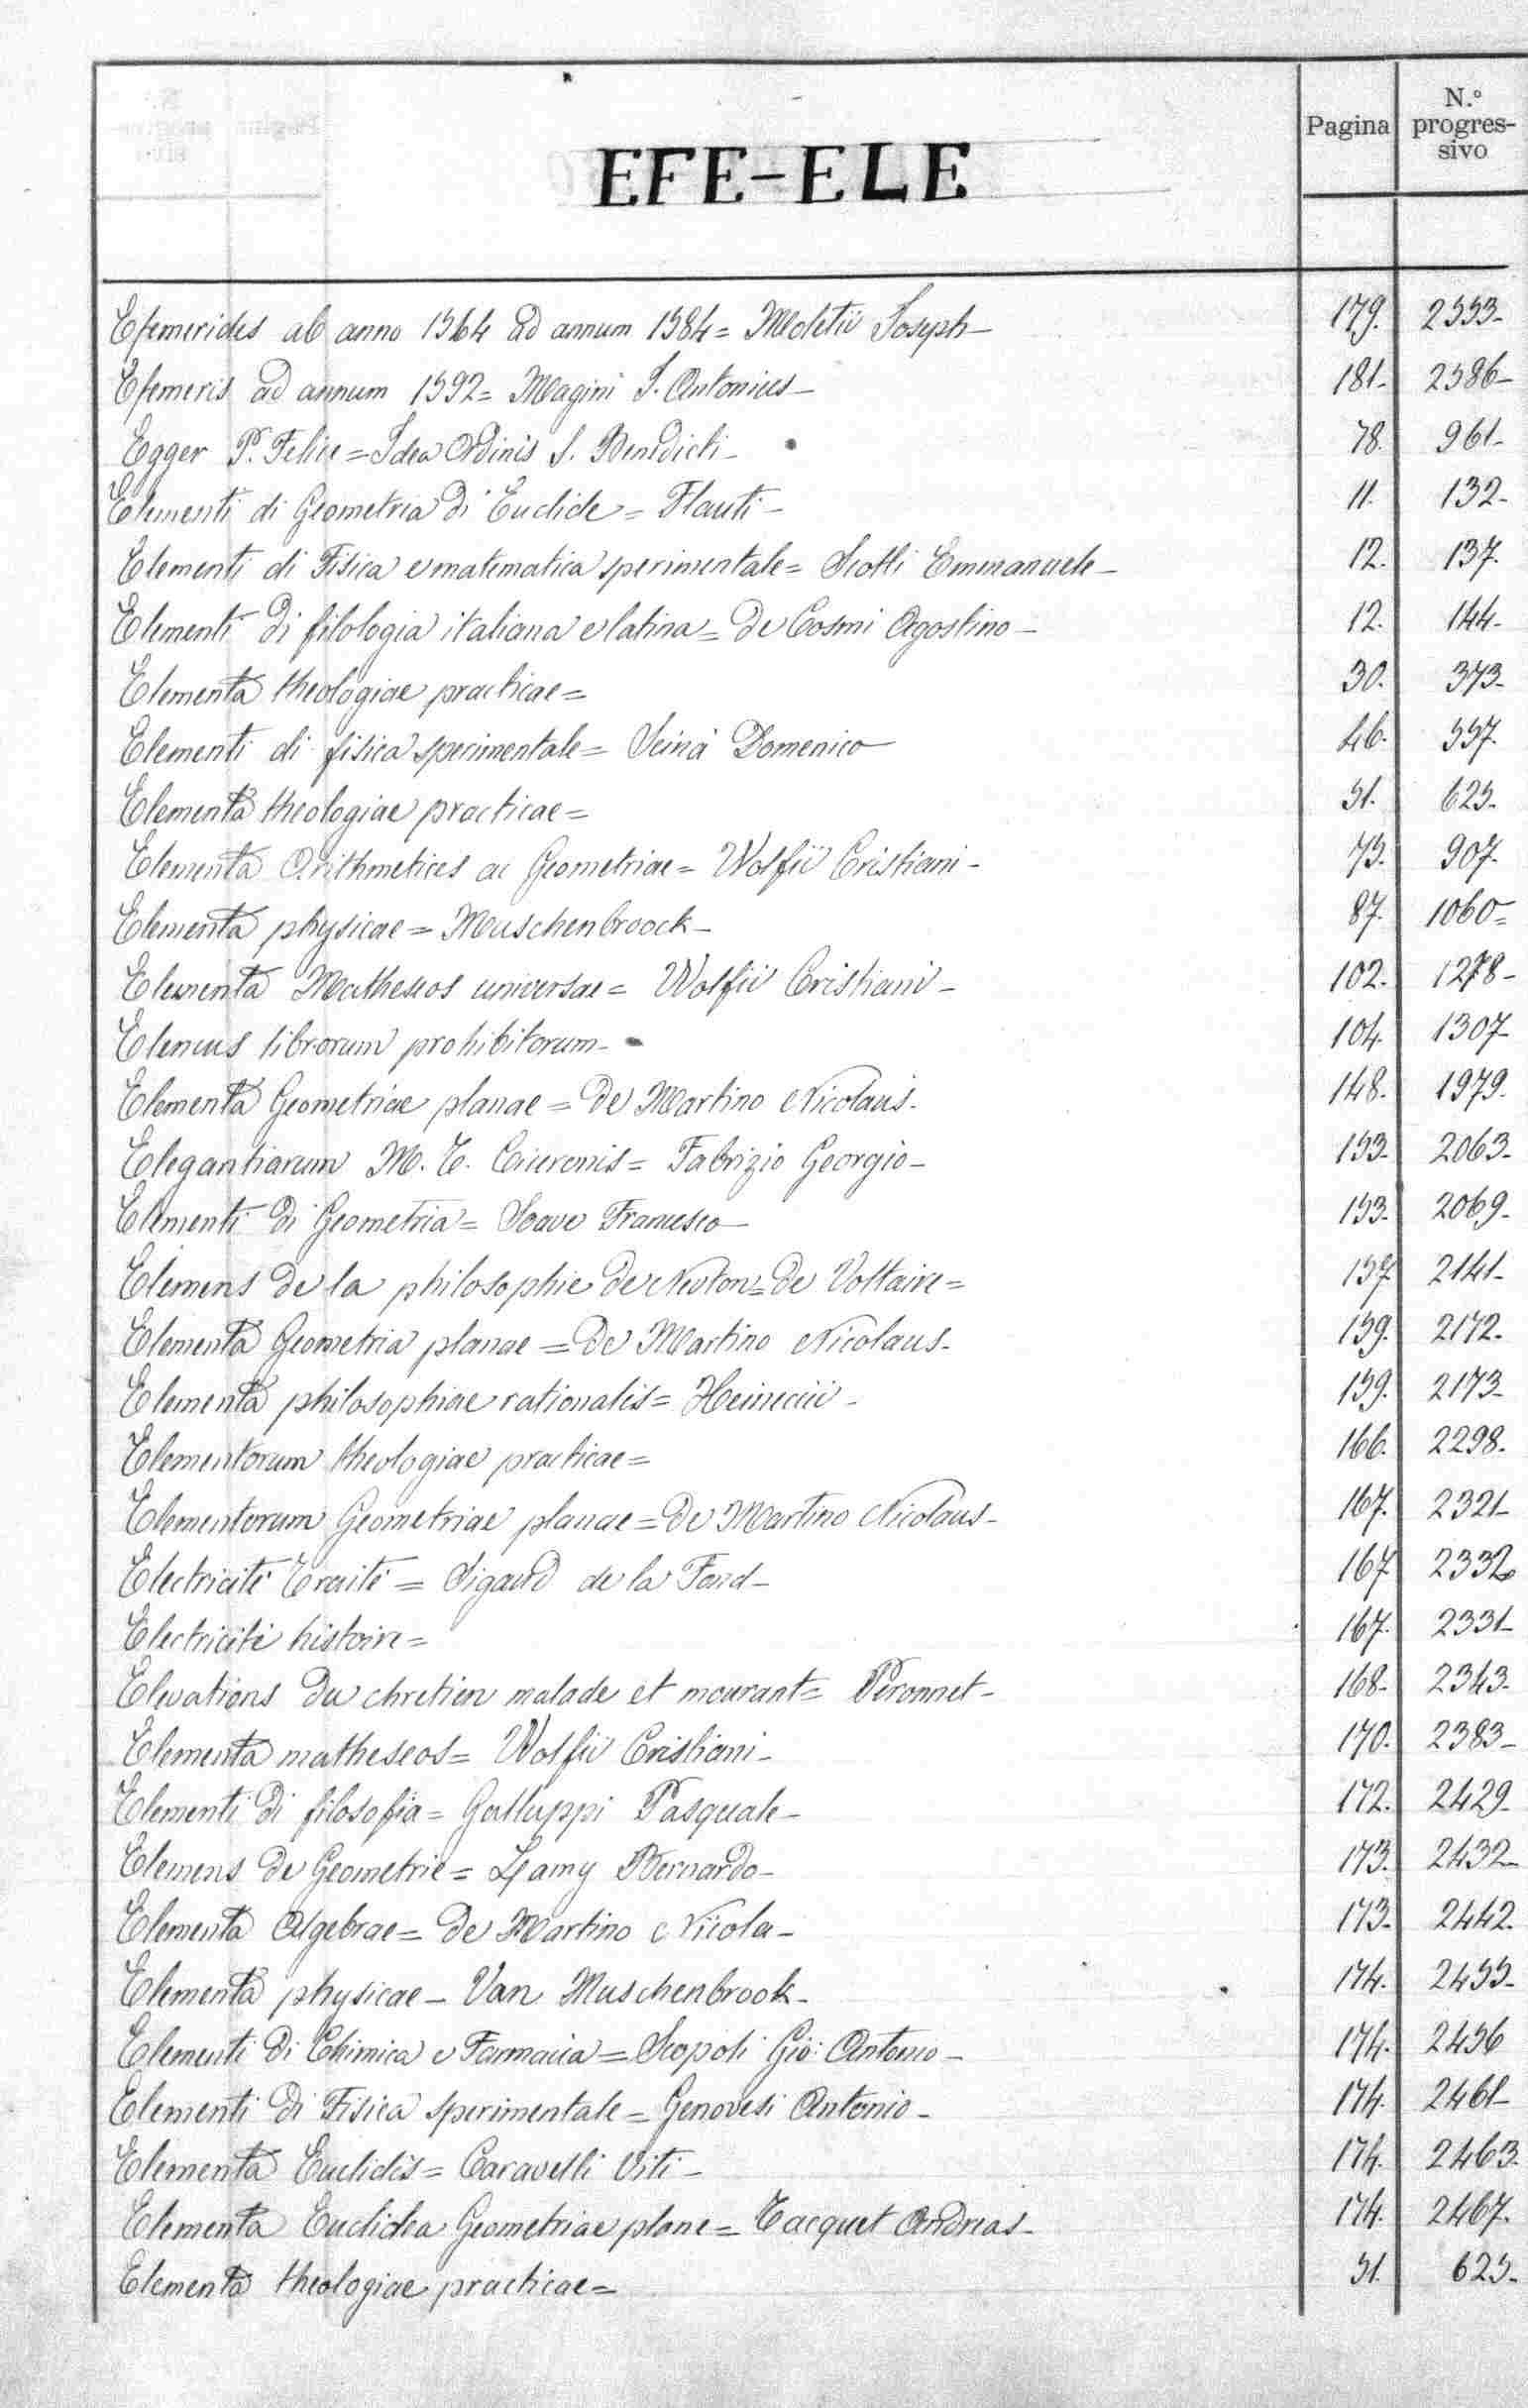 Pagina N.º progres-sivo
EFE-ELE
Efemerides ab anno 1564 ad annum 1584= Moletii Joseph- 179. 2553-
Efemeris ad annum 1592= Magini J. Antonius- 181- 2586-
Egger P. Felice= Idea Ordinis S. Benedicti- 78. 961-
Elementi di Geometria di Euclide= Flauti- 11. 132-
Elementi di Fisica e matematica sperimentale= Scotti Emmanuele- 12. 137.
Elementi di filologia italiana e latina= de Cosmi Agostino- 12. 144-
Elementa theologiae practicae= 30. 373-
Elementi di fisica sperimentale= Scinà Domenico 46. 557.
Elementa theologiae practicae= 51. 625.
Elementa Arithmetices ac Geometriae= Wolfii Cristiani- 73. 907.
Elementa physicae= Muschenbroock- 87. 1060=
Elementa Matheseos universae= Wolfii Cristiani- 102. 1278-
Elencus librorum prohibitorum- 104. 1307-
Elementa Geometriae planae= de Martino Nicolaus. 148. 1979.
Elegantiarum M. T. Ciceronis= Fabrizio Georgio- 153- 2063-
Elementi di Geometria= Soave Francesco- 153- 2069-
Elemens de la philosophie de Neuton= de Voltaire= 157 2141-
Elementa Geometria planae= de Martino Nicolaus- 159. 2172.
Elementa philosophiae rationalis= Heineccii- 159. 2173-
Elementorum theologiae practicae= 166. 2298.
Elementorum Geometriae planae= de Martino Nicolaus- 167. 2321-
Electricité Traité= Sigaud de la Fond- 167 2332
Electricité histoire= 167. 2331-
Elevations du chretien malade et mourant= Peronnet- 168- 2343-
Elementa matheseos= Wolfii Cristiani- 170. 2383-
Elementi di filosofia= Galluppi Pasquale- 172. 2429-
Elemens de Geometrie= Lamy Bernardo- 173. 2432-
Elementa Algebrae= de Martino Nicola- 173- 2442.
Elementa physicae- Van Muschenbrook- 174. 2455-
Elementi di Chimica e Farmacia= Scopoli Gio: Antonio- 174. 2456
Elementi di Fisica sperimentale= Genovesi Antonio- 174. 2461-
Elementa Euclidis= Caravelli Viti- 174. 2463.
Elementa Euclidea Geometriae plane= Tacquet Andreas- 174. 2467.
Elementa theologiae practicae= 51. 625-